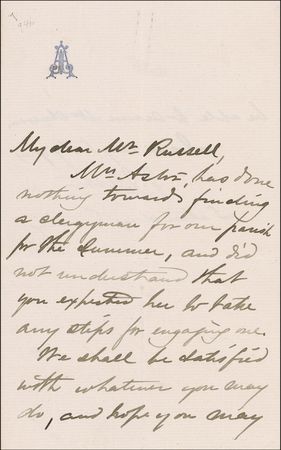 My dear Mr. Russell,
Mrs. Astor, has done
nothing towards finding
a clergyman for our parish
for the summer, and did
not understand that
you expected her to take
any steps for engaging one.
We shall be satisfied
with whatever you may
do, and hope you may